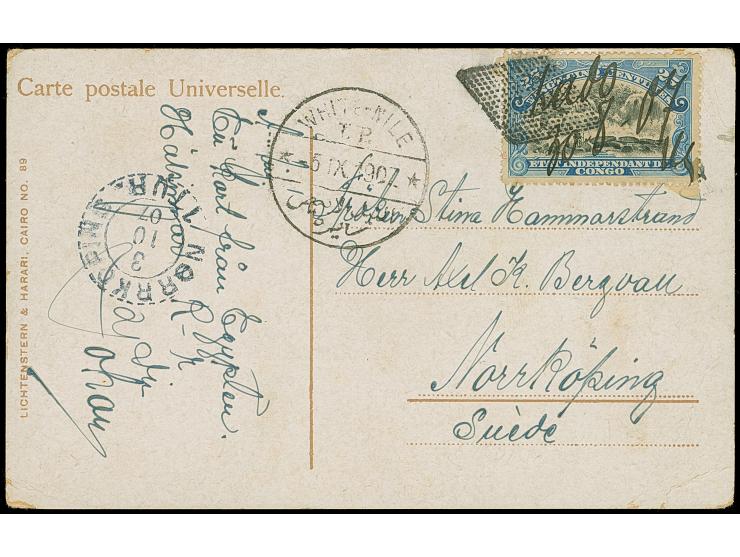 Carte postale Universelle.
LICHTENSTERN & HARARI, CAIRO NO. 89
WHITE-NILE
T. P.
5 IX 1907
VINGT-CINQ CENTIMES
25
ETAT INDEPENDANT DU
CONGO
Lado
30. 8.
Fröken Stina Hammarstrand
Herr Axel K. Bergvall
Norrköping
Suède
En kort från Egypten.
NORRKÖPING
3
10
07